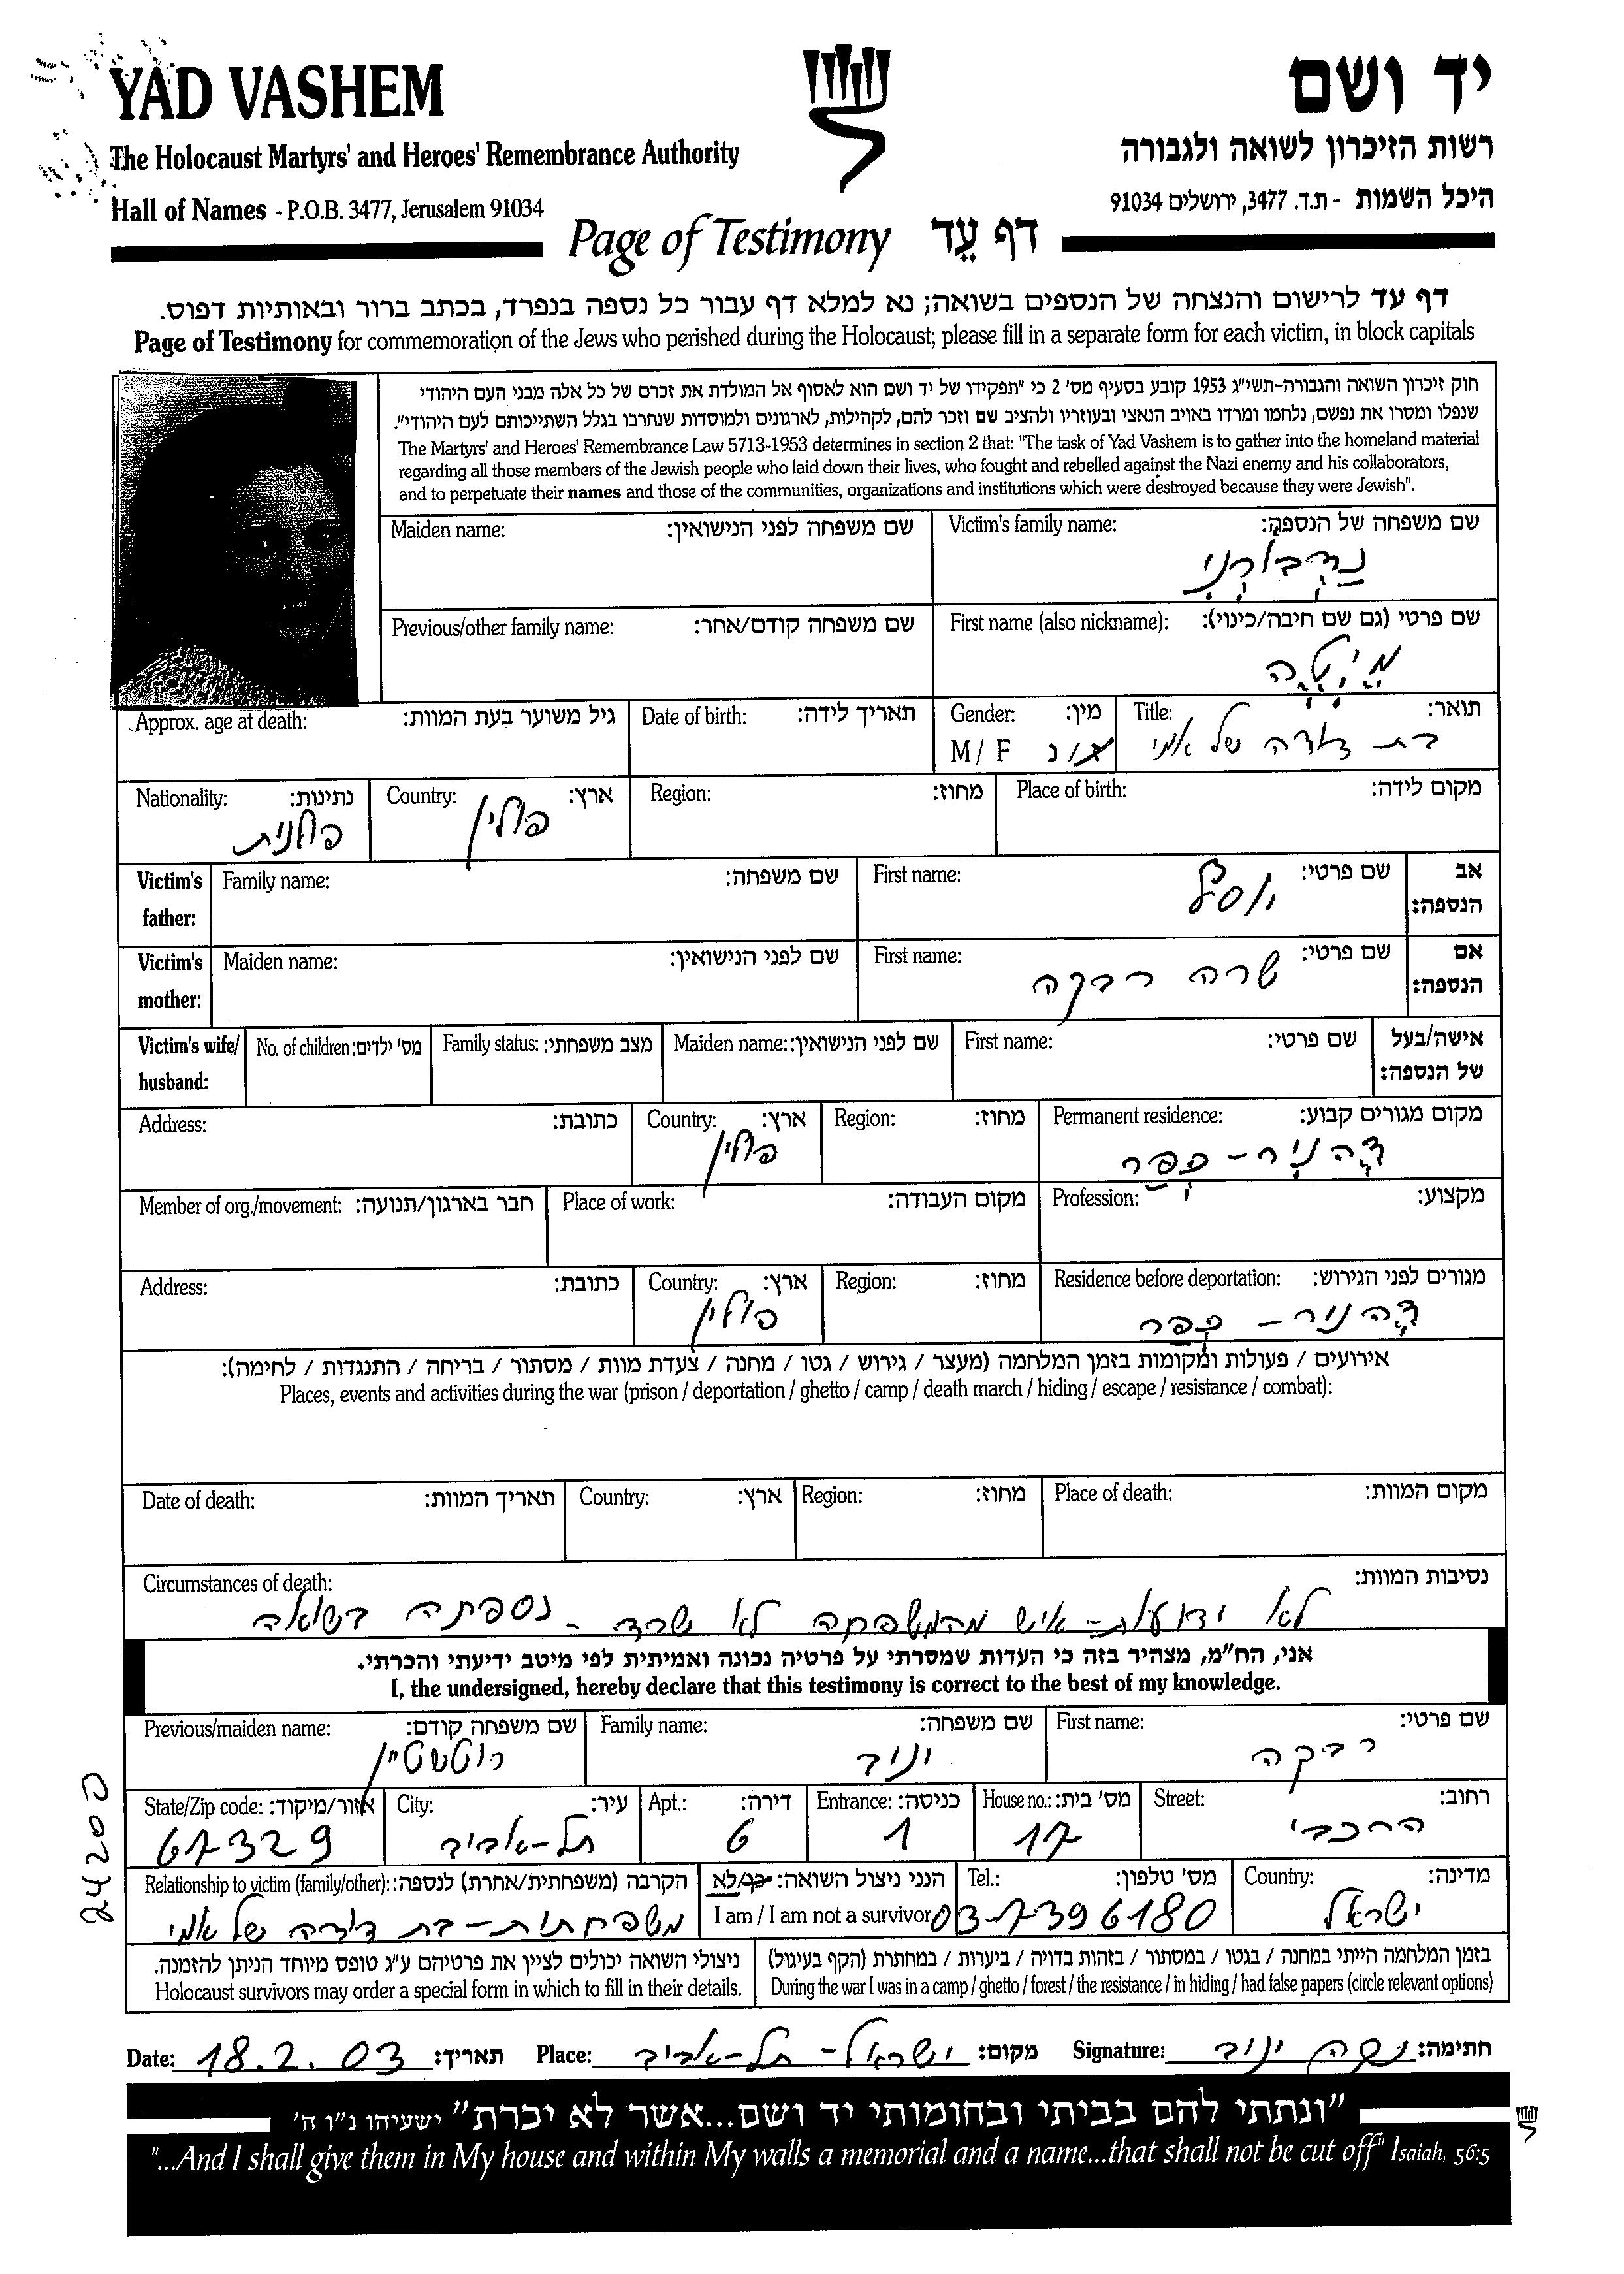 YAD VASHEM
יד ושם
The Holocaust Martyrs' and Heroes' Remembrance Authority
רשות הזיכרון לשואה ולגבורה
Hall of Names - P.O.B. 3477, Jerusalem 91034
היכל השמות - ת.ד. 3477, ירושלים 91034
Page of Testimony דף עֵד
דף עד לרישום והנצחה של הנספים בשואה; נא למלא דף עבור כל נספה בנפרד, בכתב ברור ובאותיות דפוס.
Page of Testimony for commemoration of the Jews who perished during the Holocaust; please fill in a separate form for each victim, in block capitals
חוק זיכרון השואה והגבורה-תשי"ג 1953 קובע בסעיף מס' 2 כי "תפקידו של יד ושם הוא לאסוף אל המולדת את זכרם של כל אלה מבני העם היהודי
שנפלו ומסרו את נפשם, נלחמו ומרדו באויב הנאצי ובעוזריו ולהציב שם וזכר להם, לקהילות, לארגונים ולמוסדות שנחרבו בגלל השתייכותם לעם היהודי".
The Martyrs' and Heroes' Remembrance Law 5713-1953 determines in section 2 that: "The task of Yad Vashem is to gather into the homeland material
regarding all those members of the Jewish people who laid down their lives, who fought and rebelled against the Nazi enemy and his collaborators,
and to perpetuate their names and those of the communities, organizations and institutions which were destroyed because they were Jewish".
Victim's family name: שם משפחה של הנספה:
Maiden name: שם משפחה לפני הנישואין:
First name (also nickname): שם פרטי (גם שם חיבה/כינוי):
מיטה
Previous/other family name: שם משפחה קודם/אחר:
Title: תואר:
בת דודה של אמי
Gender: מין:
M / F ז / נ
Date of birth: תאריך לידה:
Approx. age at death: גיל משוער בעת המוות:
Place of birth: מקום לידה:
Region: מחוז:
Country: ארץ:
פולין
Nationality: נתינות:
פולנית
Victim's father: אב הנספה:
First name: שם פרטי:
יוסף
Family name: שם משפחה:
Victim's mother: אם הנספה:
First name: שם פרטי:
שרה רבקה
Maiden name: שם לפני הנישואין:
Victim's wife/husband: אישה/בעל של הנספה:
First name: שם פרטי:
Maiden name: שם לפני הנישואין:
Family status: מצב משפחתי:
No. of children: מס' ילדים:
Permanent residence: מקום מגורים קבוע:
Region: מחוז:
Country: ארץ:
פולין
Address: כתובת:
Profession: מקצוע:
Place of work: מקום העבודה:
Member of org./movement: חבר בארגון/תנועה:
Residence before deportation: מגורים לפני הגירוש:
Region: מחוז:
Country: ארץ:
פולין
Address: כתובת:
אירועים / פעולות ומקומות בזמן המלחמה (מעצר / גירוש / גטו / מחנה / צעדת מוות / מסתור / בריחה / התנגדות / לחימה):
Places, events and activities during the war (prison / deportation / ghetto / camp / death march / hiding / escape / resistance / combat):
Place of death: מקום המוות:
Region: מחוז:
Country: ארץ:
Date of death: תאריך המוות:
Circumstances of death: נסיבות המוות:
לא ידועות - איש מהמשפחה לא שרד - נספתה בשואה
אני, הח"מ, מצהיר בזה כי העדות שמסרתי על פרטיה נכונה ואמיתית לפי מיטב ידיעתי והכרתי.
I, the undersigned, hereby declare that this testimony is correct to the best of my knowledge.
First name: שם פרטי:
רבקה
Family name: שם משפחה:
ינוב
Previous/maiden name: שם משפחה קודם:
רוטשטיין
Street: רחוב:
House no.: מס' בית:
17
Entrance: כניסה:
1
Apt.: דירה:
6
City: עיר:
תל-אביב
State/Zip code: אזור/מיקוד:
67329
Country: מדינה:
ישראל
Tel.: מס' טלפון:
03-7396180
הנני ניצול השואה: כן/לא
I am / I am not a survivor
Relationship to victim (family/other): הקרבה (משפחתית/אחרת) לנספה:
משפחתית - בת דודה של אמי
בזמן המלחמה הייתי במחנה / בגטו / במסתור / בזהות בדויה / ביערות / במחתרת (הקף בעיגול)
During the war I was in a camp / ghetto / forest / the resistance / in hiding / had false papers (circle relevant options)
ניצולי השואה יכולים לציין את פרטיהם ע"ג טופס מיוחד הניתן להזמנה.
Holocaust survivors may order a special form in which to fill in their details.
Date: 18.2.03 תאריך: Place: ישראל - תל-אביב מקום: Signature: רבקה ינוב חתימה:
"ונתתי להם בביתי ובחומותי יד ושם...אשר לא יכרת" ישעיהו נ"ו ה'
"...And I shall give them in My house and within My walls a memorial and a name...that shall not be cut off" Isaiah, 56:5